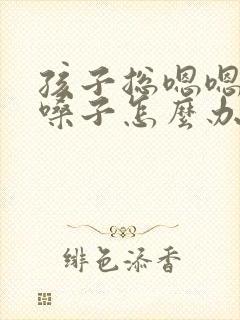 孩子总嗯嗯
嗓子怎麼办
绯色添香